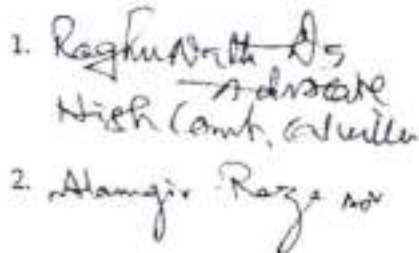 1. Raghunath Das
Advocate
High Court,
2. Alamgir Raza